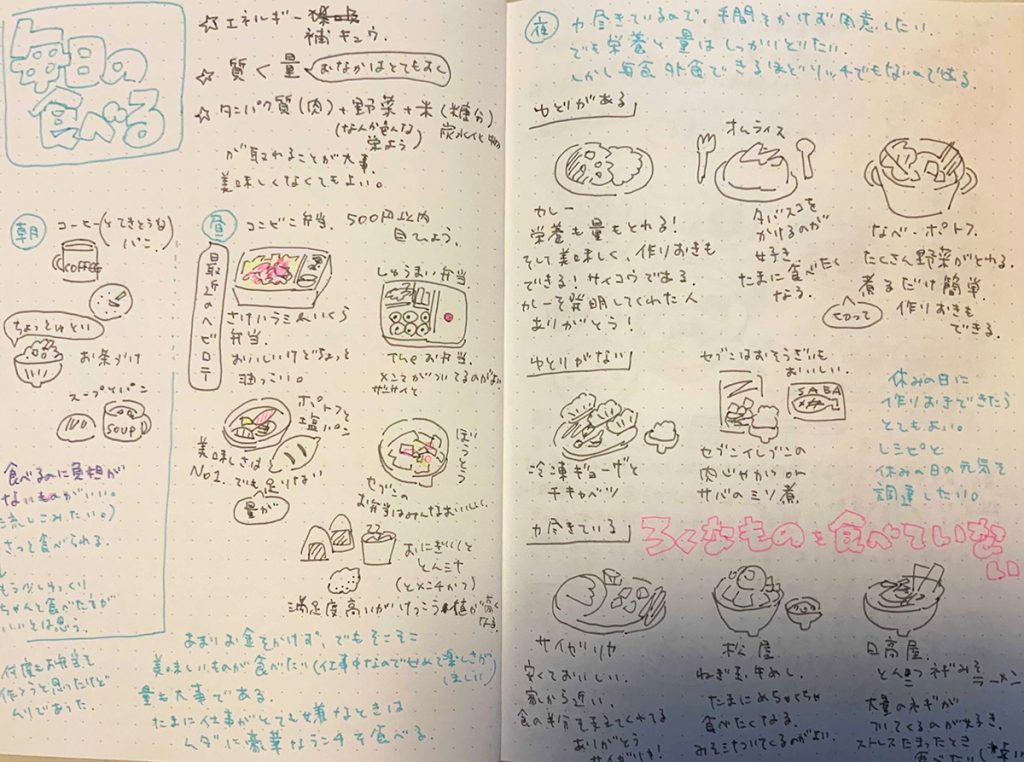 毎日の
食べる
☆エネルギー
補キュウ。
☆質<量（おなかはとてもすく）
☆タンパク質（肉）＋野菜＋米（糖分）
（なんか色んな
栄よう）
炭水化物
が取れることが大事。
美味しくなくてもよい。
朝
コーヒー（とてきとうな
パン。）
COFFEE
ちょっとゆとり
お茶づけ
スープとパン
SOUP
食べるのに負担が
ないものがいい。
流しこみたい。）
さっと食べられる。
もう少しゆっくり、
ちゃんと食べた方が
いいとは思う。
何度もお弁当を
作ろうと思ったけど
ムリであった。
昼
コンビニ弁当。500円以内
目ひょう。
最近のヘビロテ
さけいうミれいくら
弁当。
おいしいけどちょっと
油っこい。
しゅうまい弁当。
Theお弁当。
ポトフと
塩パン
美味しさは
No1。でも足りない
量が
ほうとう
セブンの
お弁当はみんなおいしい。
おにぎりと
とん汁
（とメンチカツ）
満足度高いがけっこう値が高く
なる。
あまりお金をかけず、でもそこそこ
美味しいものが食べたい（仕事中なのでせめて楽しさが
ほしい）
量も大事である。
たまに仕事がとても嫌なときは
ムダに豪華なランチを食べる。
夜
力尽きているので、手間をかけず用意したい。
でも栄養と量はしっかりとりたい。
しかし毎食外食できるほどリッチでもないのである。
ゆとりがある
カレー
栄養も量もとれる！
そして美味しく、作りおきも
できる！サイコウである。
カレーを発明してくれた人
ありがとう！
オムライス
タバスコを
かけるのが
好き
たまに食べたく
なる。
なべ・ポトフ
たくさん野菜がとれる。
煮るだけ簡単。
切って
作りおきも
できる。
ゆとりがない
冷凍ギョーザと
チキャベツ
セブンはおそうざいも
おいしい。
SABA
セブンイレブンの
肉じゃがっ or
サバのミソ煮
休みの日に
作りおきできたら
とてもよい。
レシピと
休みの日の元気を
調達したい。
力尽きている
ろくなものを食べていない
サイゼリヤ
安くておいしい。
家から近い。
食の半分を支えてくれてる
ありがとう
サイゼリヤ！
松屋
ねぎ玉牛めし
たまにめちゃくちゃ
食べたくなる。
みそ汁ついてくるのがよい。
日高屋
とんこつネギみそラーメン
大量のネギが
ついてくるのが好き。
ストレスたまったとき
食べたい